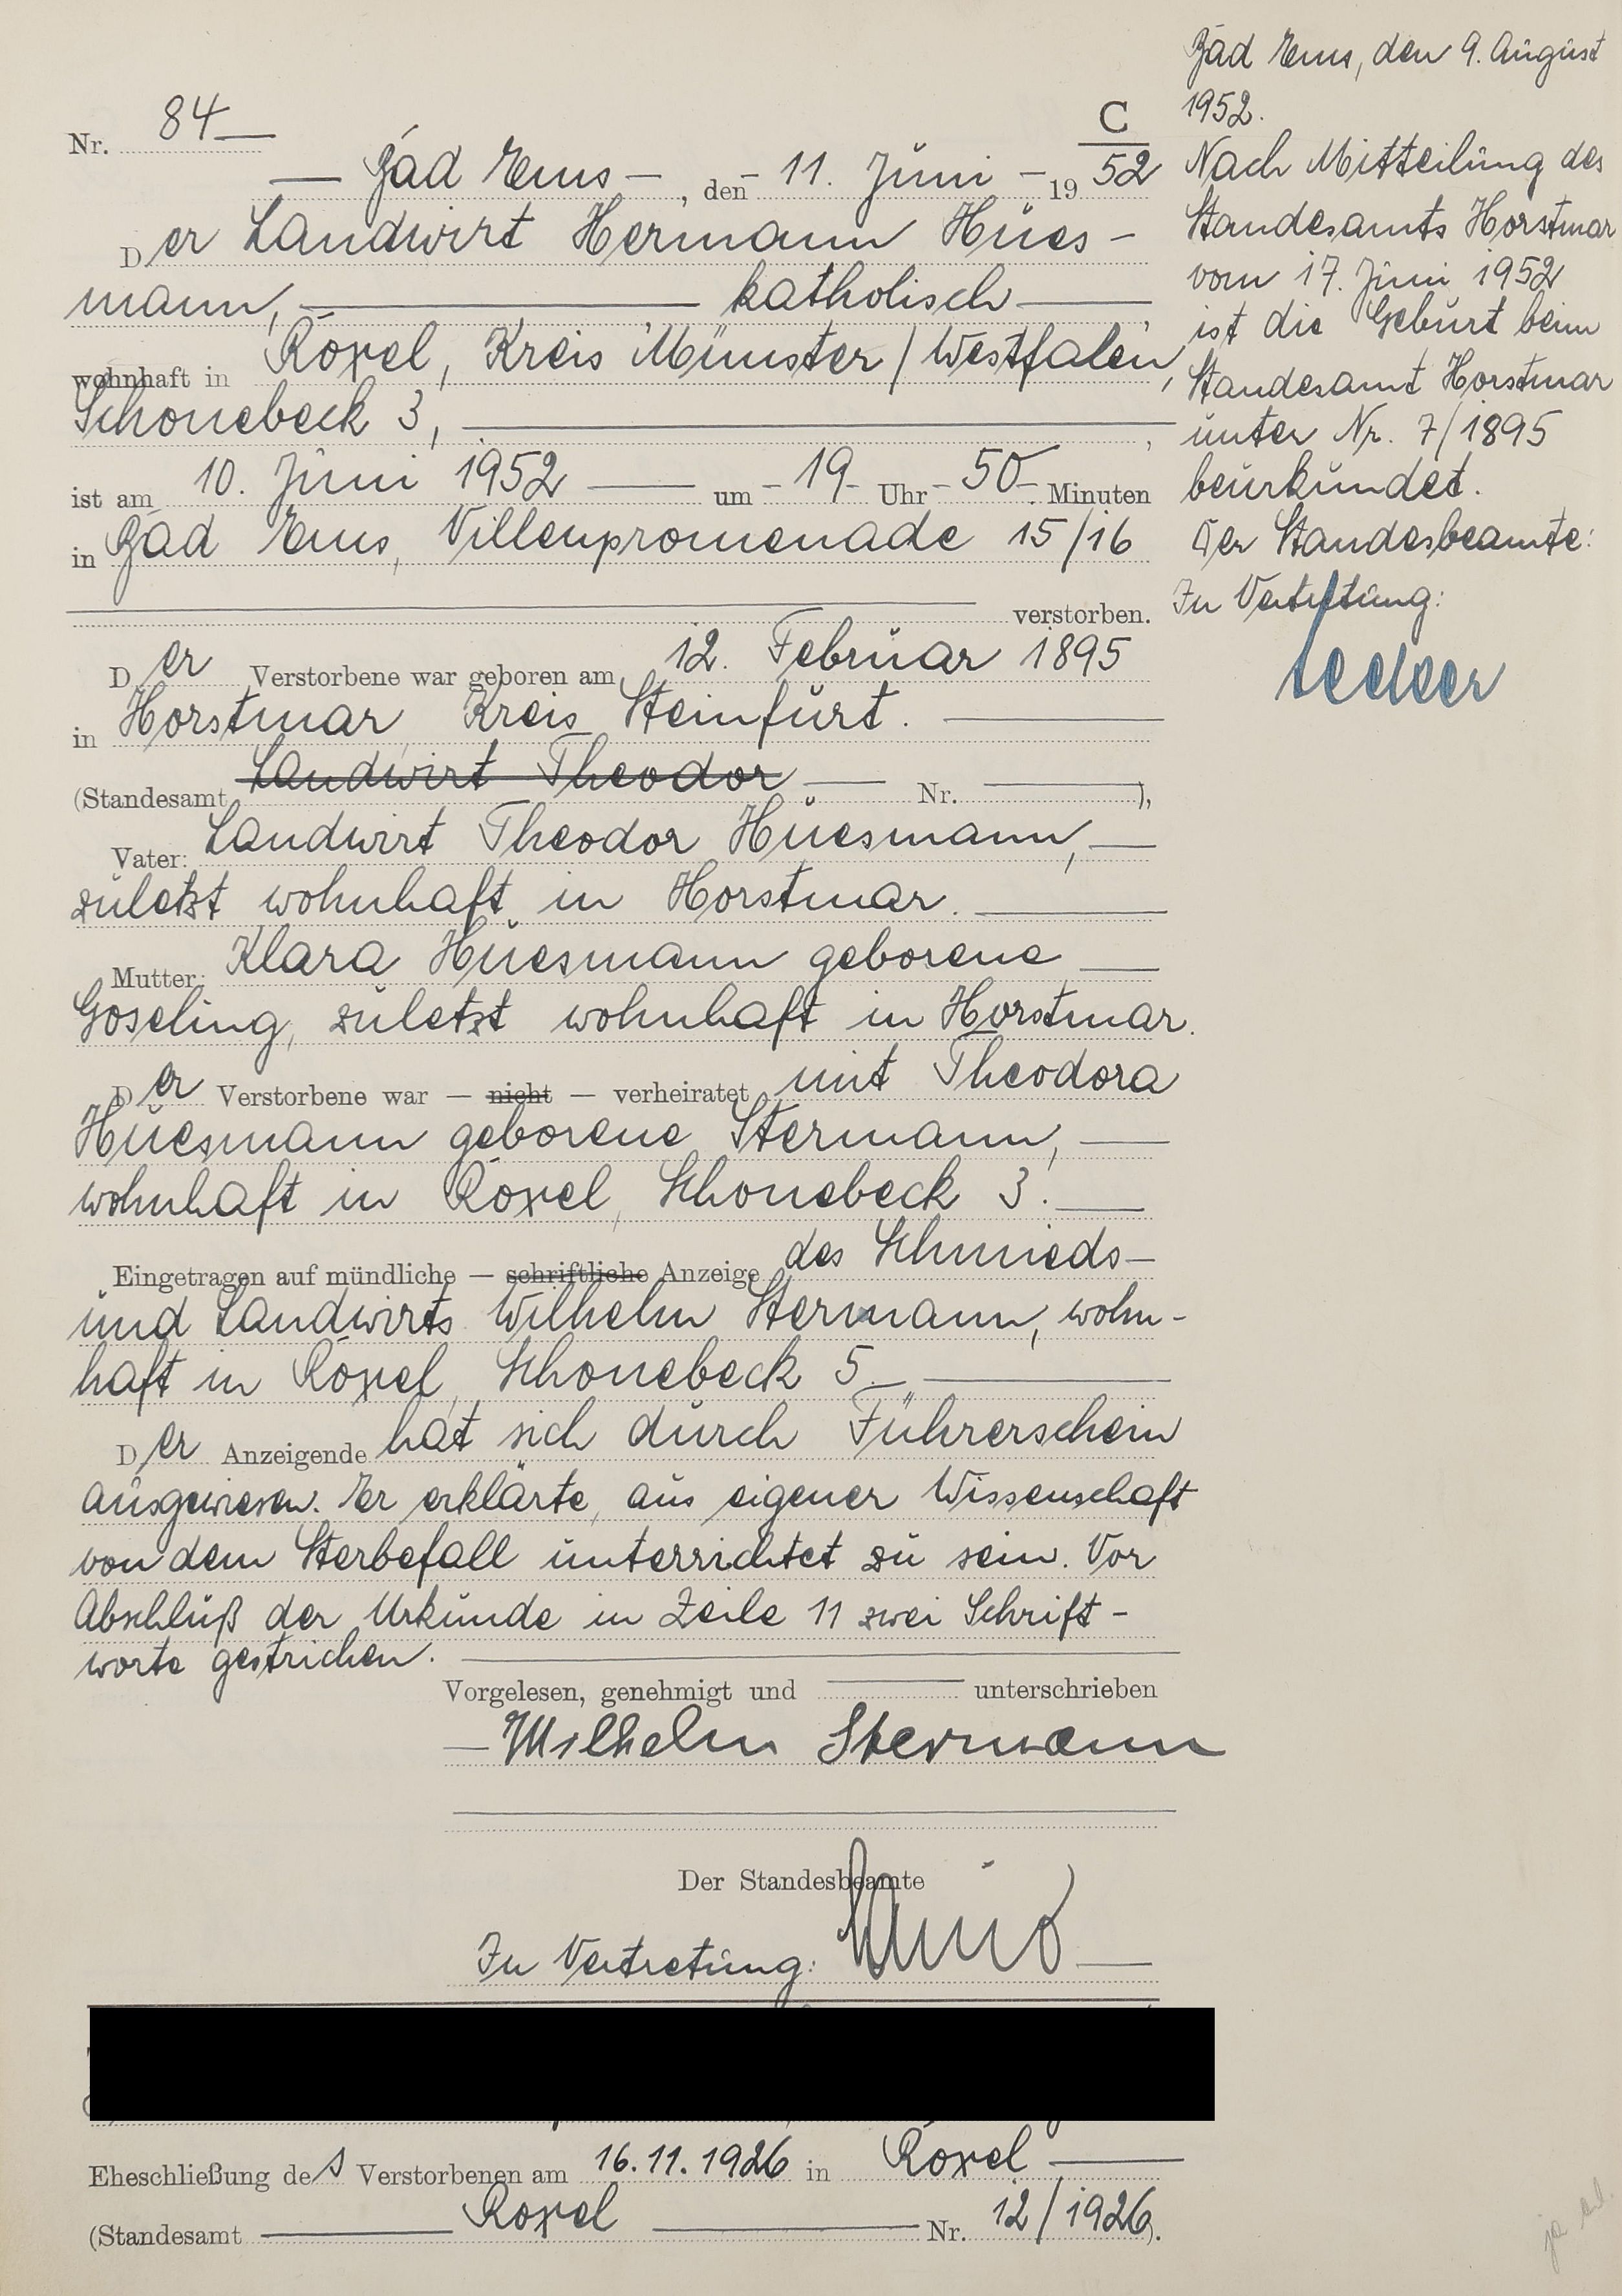 Nr. 84
C
Bad Ems, den 11. Juni 1952
Der Landwirt Hermann Hües-
mann, katholisch
wohnhaft in Roxel, Kreis Münster / Westfalen,
Schonebeck 3,
ist am 10. Juni 1952 um 19 Uhr 50 Minuten
in Bad Ems, Villenpromenade 15/16
verstorben.
Der Verstorbene war geboren am 12. Februar 1895
in Horstmar, Kreis Steinfurt.
(Standesamt Landwirt Theodor Nr. ),
Vater: Landwirt Theodor Hüesmann,
zuletzt wohnhaft in Horstmar.
Mutter: Klara Hüesmann geborene
Göseling, zuletzt wohnhaft in Horstmar.
Der Verstorbene war — nicht — verheiratet mit Theodora
Hüesmann geborene Stermann,
wohnhaft in Roxel, Schonebeck 3.
Eingetragen auf mündliche — schriftliche Anzeige des Schmieds-
und Landwirts Wilhelm Stermann, wohn-
haft in Roxel, Schonebeck 5.
Der Anzeigende hat sich durch Führerschein
ausgewiesen. Er erklärte, aus eigener Wissenschaft
von dem Sterbefall unterrichtet zu sein. Vor
Abschluß der Urkunde in Zeile 11 zwei Schrift-
worte gestrichen.
Vorgelesen, genehmigt und unterschrieben
Wilhelm Stermann
Der Standesbeamte
In Vertretung:
Eheschließung des Verstorbenen am 16.11.1926 in Roxel
(Standesamt Roxel Nr. 12/1926).
Bad Ems, den 9. August
1952.
Nach Mitteilung des
Standesamts Horstmar
vom 17. Juni 1952
ist die Geburt beim
Standesamt Horstmar
unter Nr. 7/1895
beurkundet.
Der Standesbeamte:
In Vertretung: